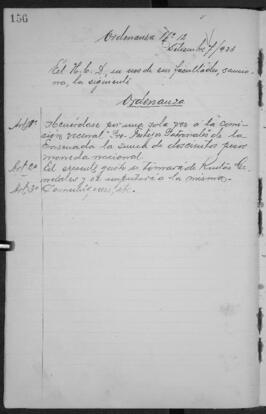 156
Ordenanza Nº 12
Setiembre 7/933
El H. C. D. en uso de sus facultades, sancio-
na, la siguiente
Ordenanza
Art. 1º Acuérdase por una sola vez a la comi-
sión vecinal "Pro Fiestas Patronales" de la
Ensenada la suma de doscientos pesos
moneda nacional.
Art. 2º El presente gasto se tomará de Rentas Ge-
nerales y se imputará a la misma.
Art. 3º Comuníquese, etc.